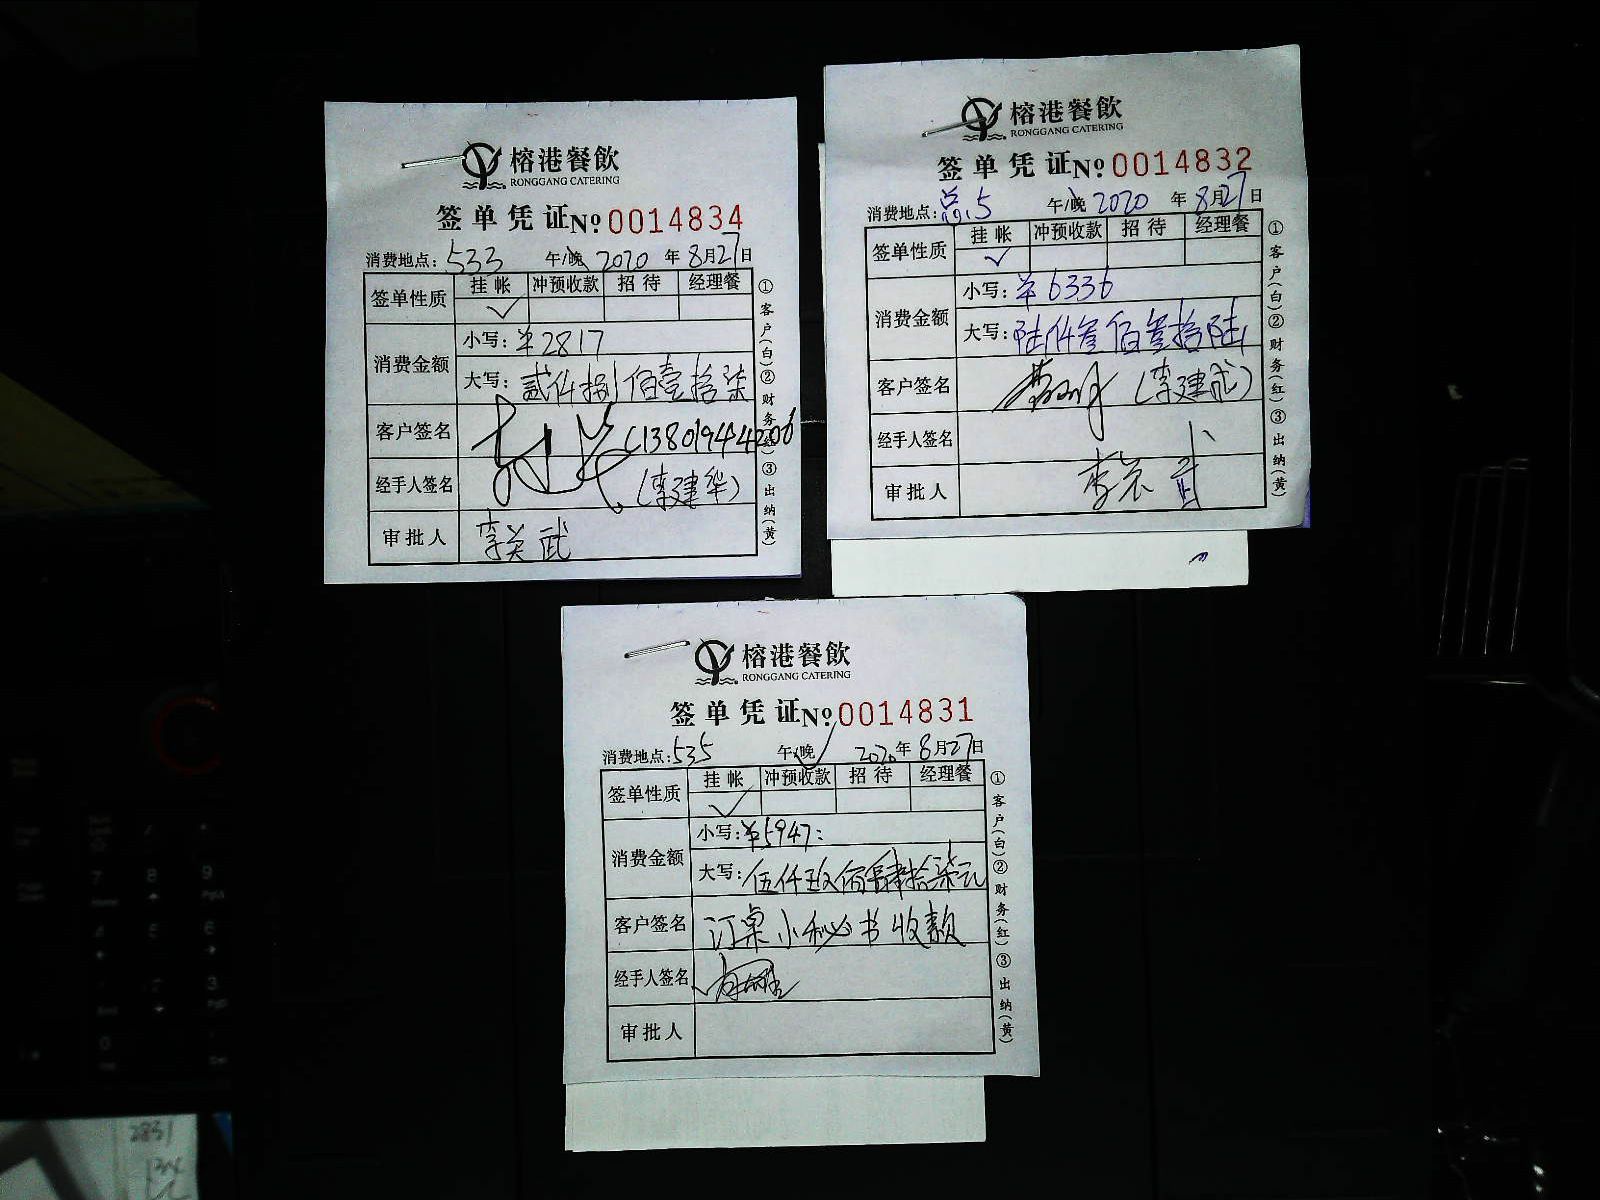 榕港餐飲
RONGGANG CATERING
签单凭证№0014834
消费地点：533 午/晚 2020年8月27日
签单性质 挂帐 冲预收款 招待 经理餐
消费金额 小写：¥2817
大写：贰仟捌佰壹拾柒
客户签名 (13801944206
经手人签名 (李建华)
审批人
①客户(白)②财务(红)③出纳(黄)
榕港餐飲
RONGGANG CATERING
签单凭证№0014832
消费地点：总5 午/晚 2020年8月27日
签单性质 挂帐 冲预收款 招待 经理餐
消费金额 小写：¥6336
大写：陆仟叁佰叁拾陆
客户签名
经手人签名
审批人
①客户(白)②财务(红)③出纳(黄)
榕港餐飲
RONGGANG CATERING
签单凭证№0014831
消费地点：535 午/晚 2020年8月27日
签单性质 挂帐 冲预收款 招待 经理餐
消费金额 小写：¥5947：
大写：伍仟玖佰肆拾柒元
客户签名 订桌小秘书收款
经手人签名
审批人
①客户(白)②财务(红)③出纳(黄)